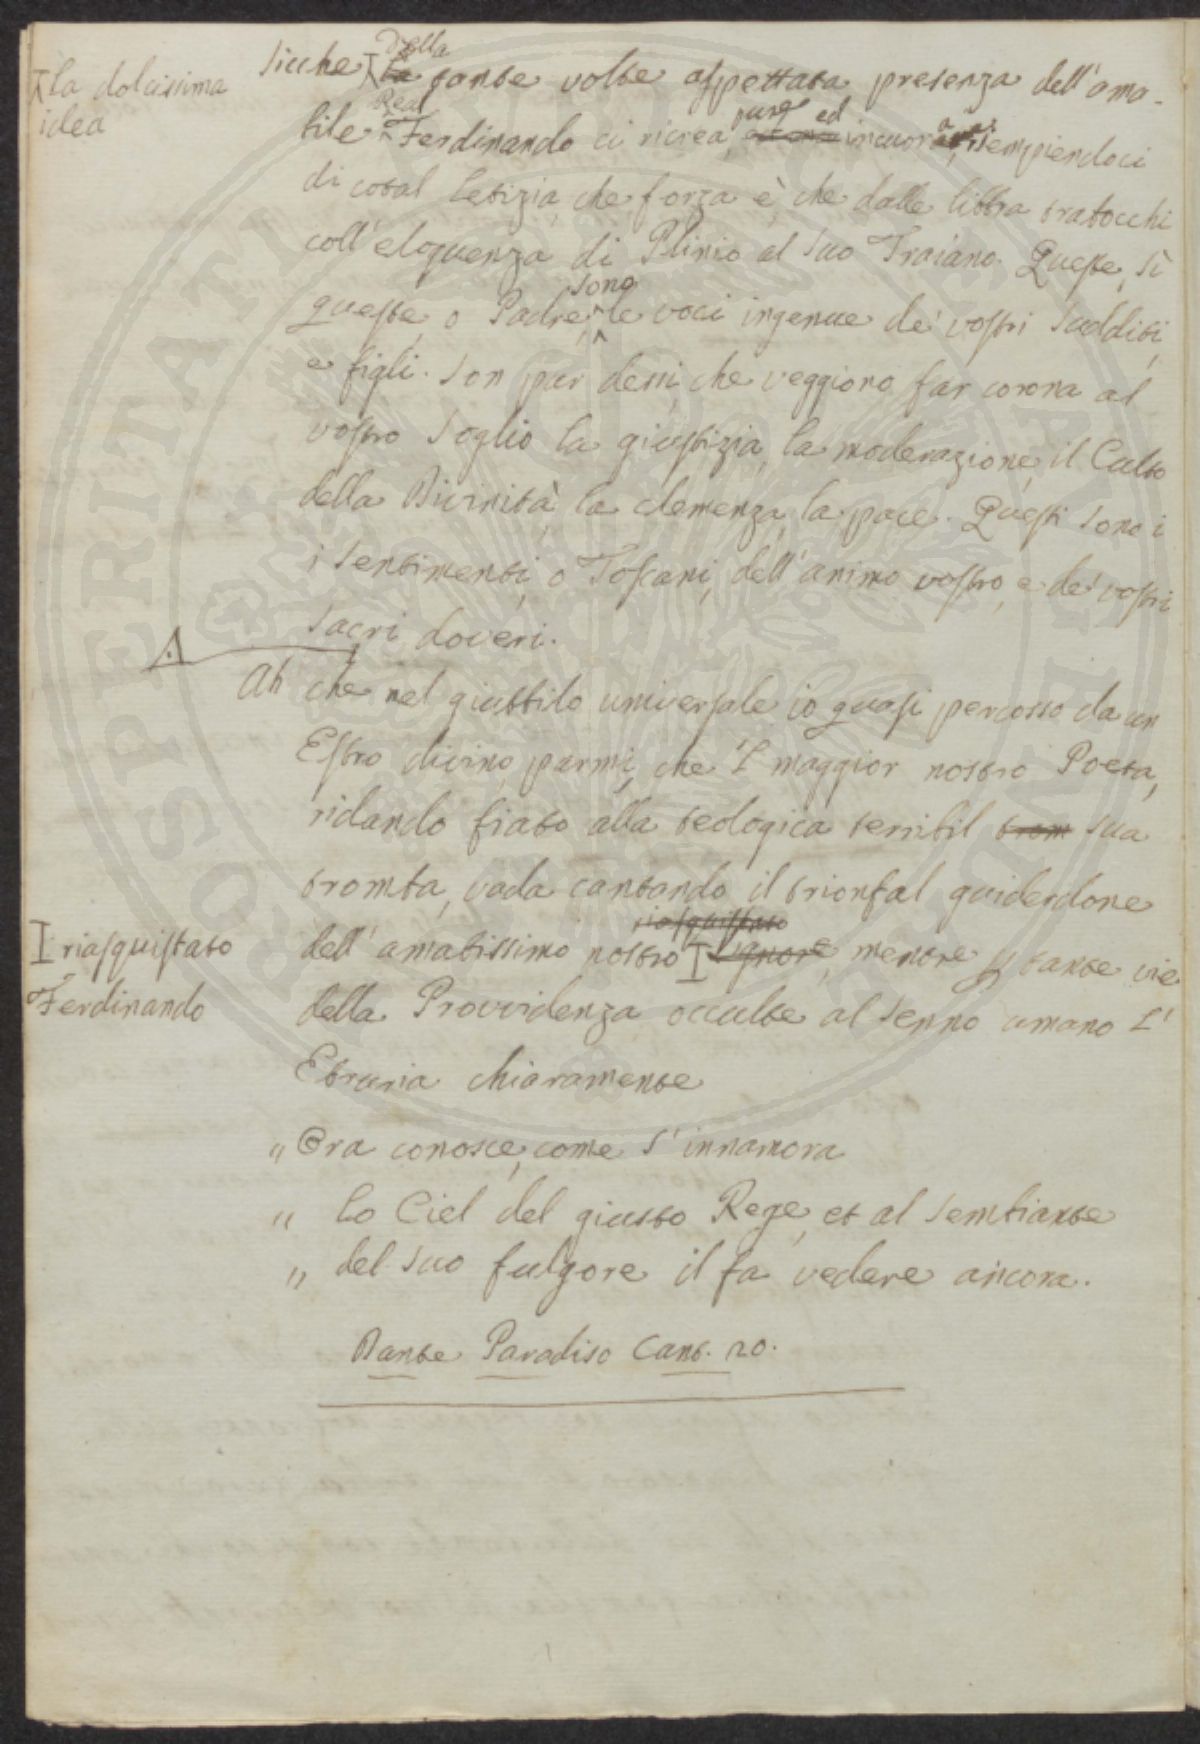 la dolcissima
idea
Della
Sicche la tante volte aspettata presenza dell'ama-
Real pure ed
bile Ferdinando ci ricrea, incuora, riempiendoci
di cotal letizia, che forza è, che dalle labbra trabocchi
coll'eloquenza di Plinio al suo Traiano. Queste, sì
sono
queste, o Padre, le voci ingenue de' vostri Sudditi,
e figli. Son pur dessi, che veggiono far corona al
vostro Soglio la giustizia, la moderazione, il Culto
della Divinità, la clemenza, la pace. Questi sono i
i sentimenti, o Toscani, dell'animo vostro, e de' vostri
sacri doveri.
Ah che nel giubbilo universale io quasi percosso da un
Estro divino parmi, che 'l maggior nostro Poeta,
ridando fiato alla teologica terribil trom sua
tromba, vada cantando il trionfal guiderdone
riasquistato
dell'amatissimo nostro Signore, mentre p tante vie
riasquistato
Ferdinando
della Provvidenza occulte al senno umano l'
Etruria chiaramente
„ Ora conosce, come s'innamora
„ Lo Ciel del giusto Rege, et al sembiante
„ del suo fulgore il fa vedere ancora.
Dante Paradiso Cant. 20.
PROSPERITATI PUBLICAE AUGENDAE